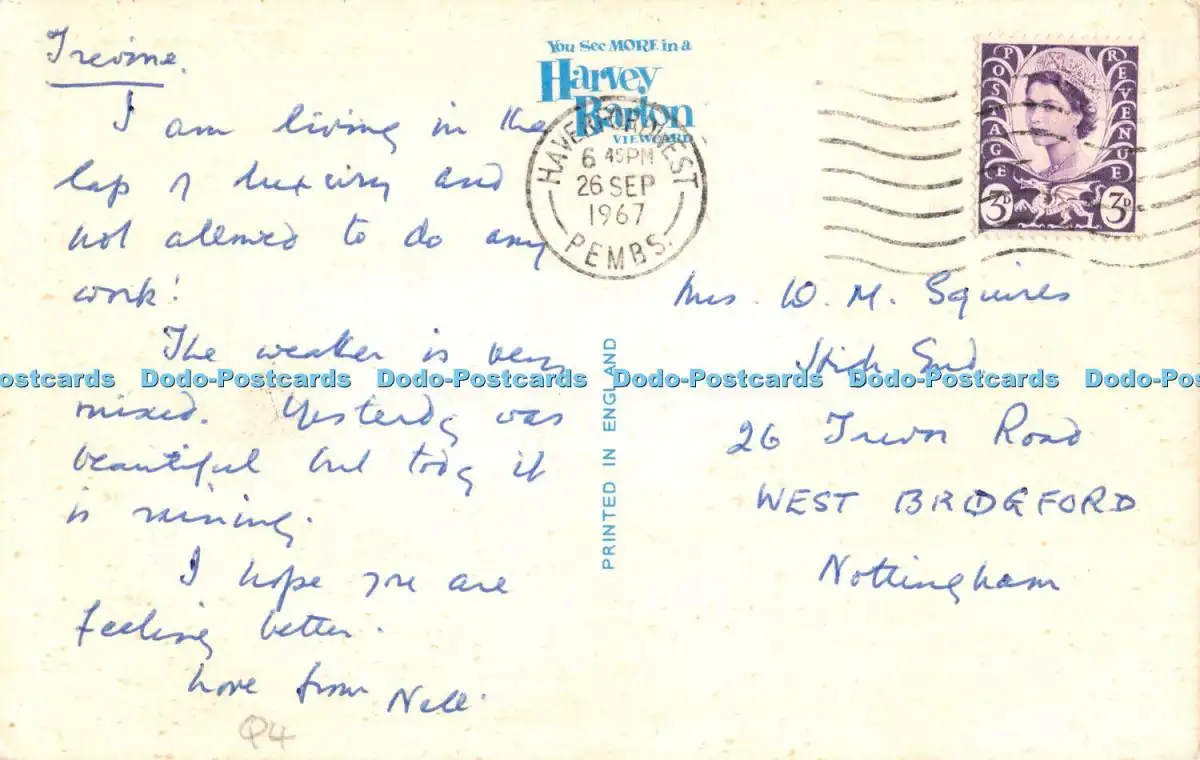 Trevine.
I am living in the
lap of luxury and
not allowed to do any
work!
The weather is very
mixed. Yesterday was
beautiful but today it
is raining.
I hope you are
feeling better.
Love from Nell.
Q4
You See MORE in a
Harvey
Barton
VIEWCARD
HAVERFORDWEST
6 45PM
26 SEP
1967
PEMBS.
PRINTED IN ENGLAND
POSTAGE
REVENUE
3D
3D
Mrs. W. M. Squires
End
26 Trevor Road
WEST BRIDGFORD
Nottingham
ostcards Dodo-Postcards Dodo-Postcards Dodo-Postcards Dodo-Postcards Dodo-Postc